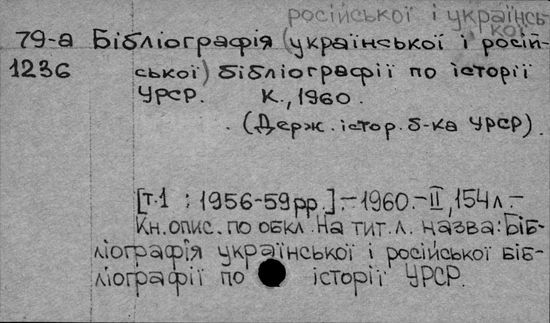 російської і українсь-
кої
79-а Бібліографія (української і росій-
1236 ської) бібліографії по історії
УРСР. К., 1960.
(Держ. істор. б-ка УРСР).
[т.1 : 1956-59рр.].-1960.-II, 154 л.-
Кн. опис. по обкл. На тит. л. назва: Біб-
ліографія української і російської біб-
ліографії по історії УРСР.